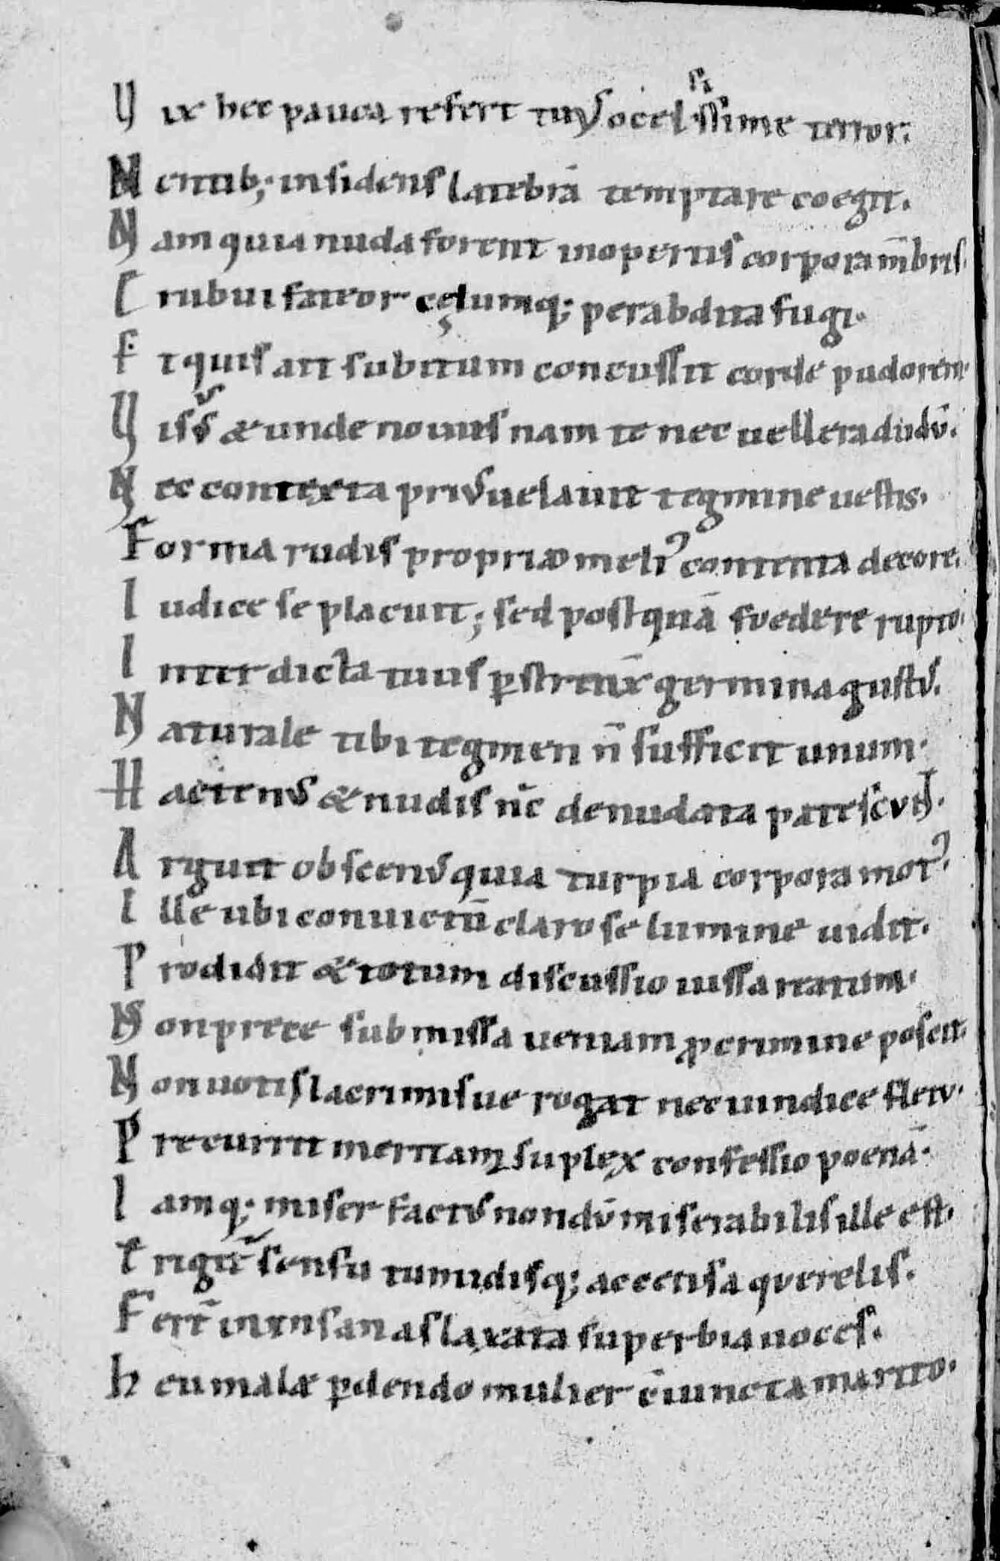 Vix hec pauca refert tuus o celsissime terror.
Mentib; insidens latebrā temptare coegit.
Nam quia nuda forent inopertis corpora mēbris.
Erubui fateor cęlumq; per abdita fugi.
Et quis ait subitum concussit corde pudorem.
Visus & unde nouus nam te nec uellera dudū.
Nec contexta prius uelauit tegmine uestis.
Forma rudis propriæ meli᾽ contenta decore.
Iudice se placuit; sed postquā foedere rupto.
Interdicta tuus ꝑstrīxit germina gustus.
Naturale tibi tegmen n̄ sufficit unum.
Hactenus & nudis nc̄ denudata patescunt.
Arguit obscenus quia turpia corpora mot᾽.
Ille ubi conuictū claro se lumine uidit.
Prodidit & totum discussio iussa reatum.
Non prece submissa ueniam ꝓ crimine poscit.
Non uotis lacrimisue rogat nec uindice fletu.
Precurrit meritam suplex confessio poenā.
Iamq; miser factus nondū miserabilis ille est.
Erigit᾽ sensu tumidisq; accensa querelis.
Fert̄ in insanas laxata superbia uoces.
Heu male ꝑdendo mulier c̄iuncta marito.